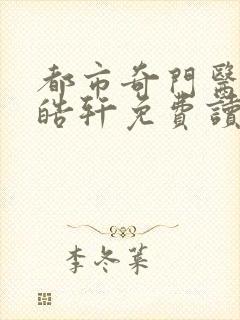 都市奇門醫
皓軒免費讀
李冬菓